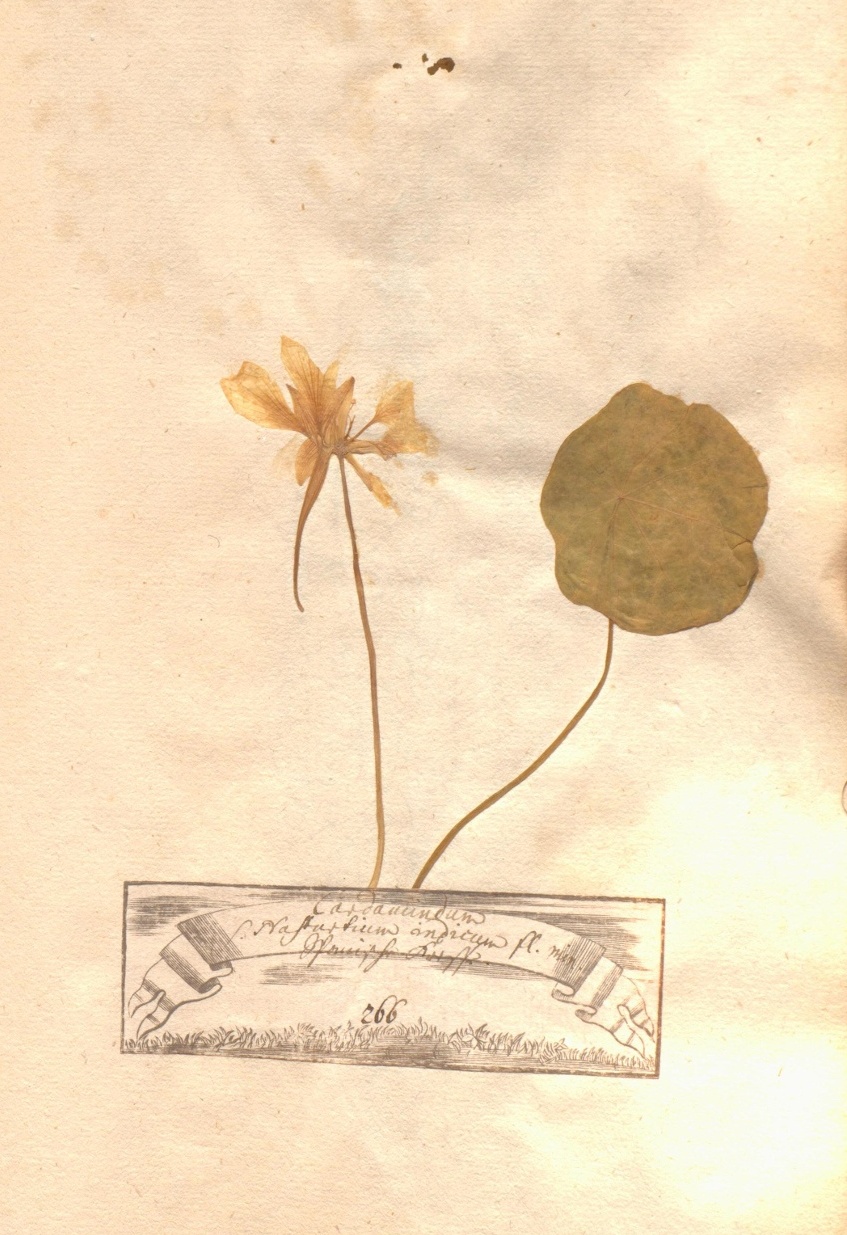 Cardamindum
s. Nasturtium indicum fl. min.
Spanische Kress
266